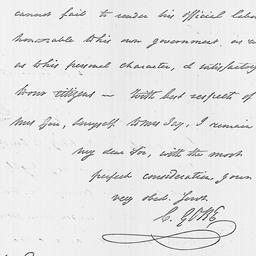 cannot fail to render his official labo
honorable to his own government, as w
as to his personal character, & satisfactory
to our citizens — With best respects of
Mrs , & myself to Mrs Jay, I remain
my dear Sir, with the most
perfect consideration your
very obed. Servt.